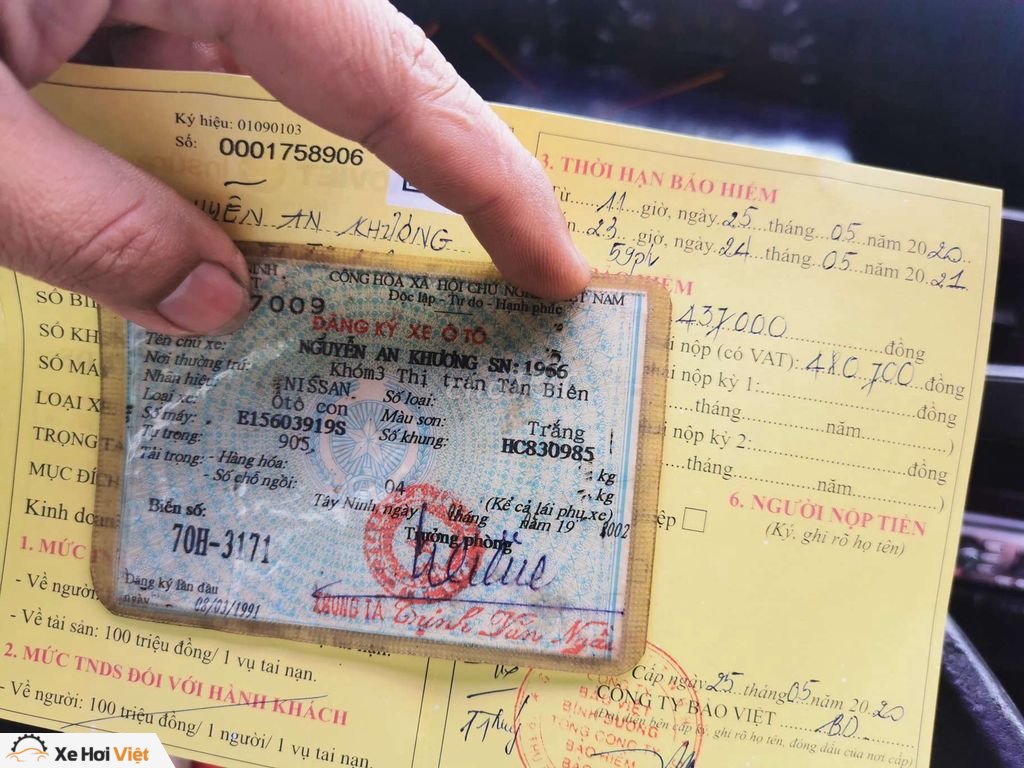 Ký hiệu: 01090103
Số: 0001758906
AN KHƯƠNG
SỐ
SỐ KH
SỐ MÁ
LOẠI X
TRỌNG
MỤC ĐÍCH
Kinh doa
1. MỨC
- Về người
- Về tài sản: 100 triệu đồng/ 1 vụ tai nạn.
2. MỨC TNDS ĐỐI VỚI HÀNH KHÁCH
- Về người: 100 triệu đồng/ 1 người/ 1 vụ tai nạn.
CỘNG HÒA XÃ HỘI CHỦ NGHĨA VIỆT NAM
Độc lập - Tự do - Hạnh phúc
7009
ĐĂNG KÝ XE Ô TÔ
Tên chủ xe: NGUYỄN AN KHƯƠNG SN:1966
Nơi thường trú: Khóm3 Thị trấn Tân Biên
Nhãn hiệu: NISSAN Số loại:
Loại xe: Ôtô con Màu sơn: Trắng
Số máy: E15603919S Số khung: HC830985
Tự trọng: 905 kg
Tải trọng: - Hàng hóa: kg
- Số chỗ ngồi: 04 (Kể cả lái phụ xe)
Tây Ninh, ngày tháng năm 19 2002
Biển số: Trưởng phòng
70H-3171
Đăng ký lần đầu
ngày 08/03/1991
TRUNG TÁ Trịnh Văn
3. THỜI HẠN BẢO HIỂM
Từ 11 giờ, ngày 25 tháng 05 năm 2020
23 giờ, ngày 24 tháng 05 năm 2021
59ph
437.000 đồng
nộp (có VAT): 480.700 đồng
nộp kỳ 1: đồng
tháng năm )
nộp kỳ 2: đồng
tháng năm )
6. NGƯỜI NỘP TIỀN
(Ký, ghi rõ họ tên)
Cấp ngày 25 tháng 05 năm 2020
CÔNG TY BẢO VIỆT BD
(Đại diện bên cấp ký, ghi rõ họ tên, đóng dấu của nơi cấp)
CÔNG TY
BẢO VIỆT
BÌNH DƯƠNG
TỔNG CÔNG TY
BẢO HIỂM
Xe Hơi Việt